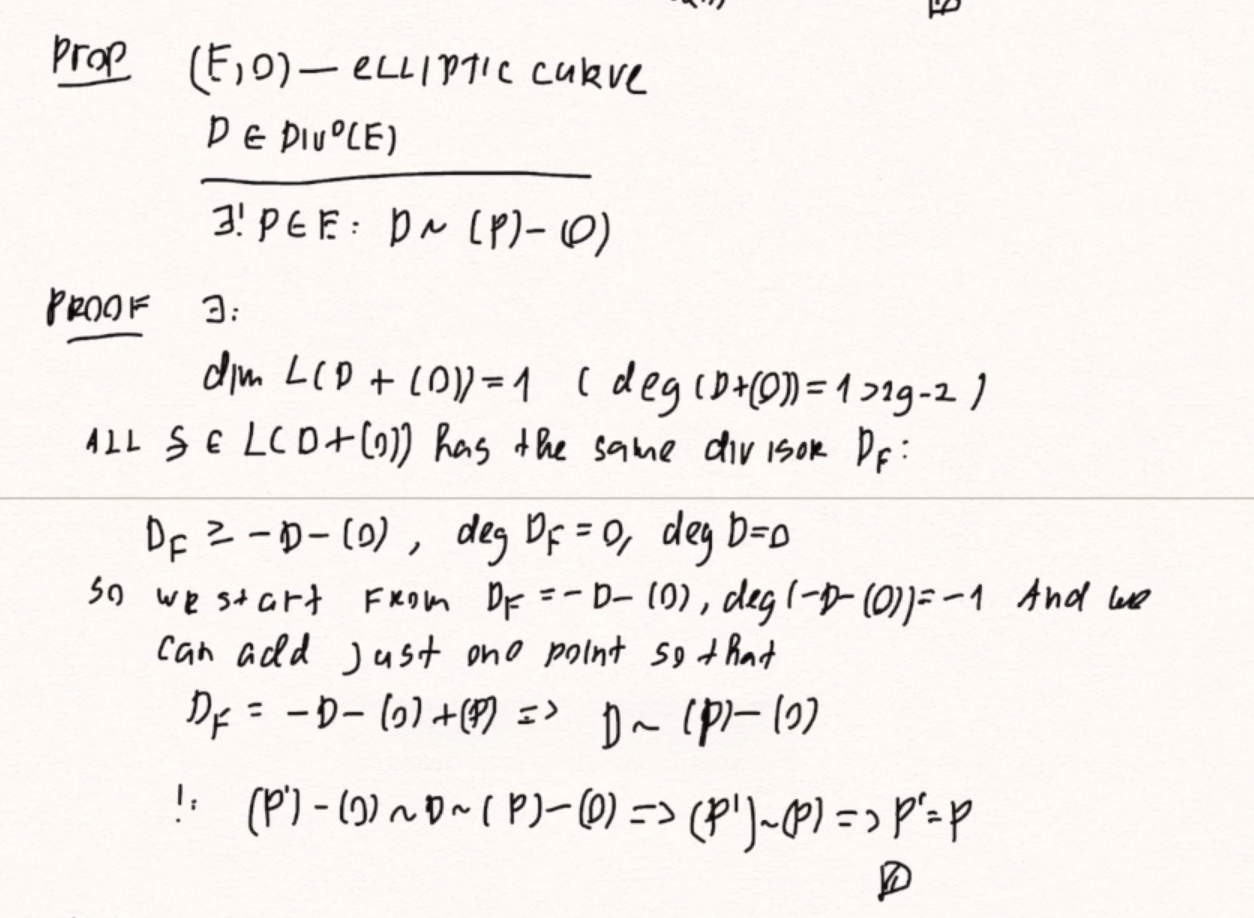 Prop (E,O) — ELLIPTIC CURVE
D ∈ DIV⁰(E)
∃! P ∈ E: D ~ (P) - (O)
PROOF ∃:
dim L(D + (O)) = 1 ( deg (D+(O)) = 1 > 2g-2 )
ALL f ∈ L(D+(O)) has the same divisor D_F:
D_F ≥ -D-(O), deg D_F = 0, deg D=0
So we start from D_F = -D-(O), deg(-D-(O)) = -1 And we
can add just one point so that
D_F = -D-(O)+(P) => D ~ (P)-(O)
!: (P')-(O) ~ D ~ (P)-(O) => (P')~(P) => P'=P